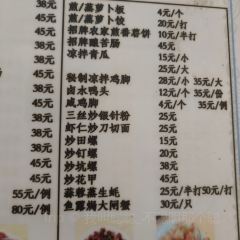 38元 煎/蒸萝卜板 4元/个
煎/蒸萝卜饺 20元/打
45元 招牌农家煎番薯饼 10元/半打
38元 招牌酿苦肠 45元
45元 凉拌青瓜 15元/小
25元/大
45元 秘制凉拌鸡脚 28元/小 35元/大
38元 卤水鸭头 12元/小 35元/份
45元 咸鸡脚 4元/个 35元/例
38元 三丝炒银针粉 25元
38元 虾仁炒刀切面 25元
38元 炒田螺 25元
38元 炒钉螺 25元
45元 炒坑螺 38元
45元 炒花甲 45元
55元/例 蒜蓉蒸生蚝 25元/半打50元/打
80元/例 鱼露焗大闸蟹 30元/只